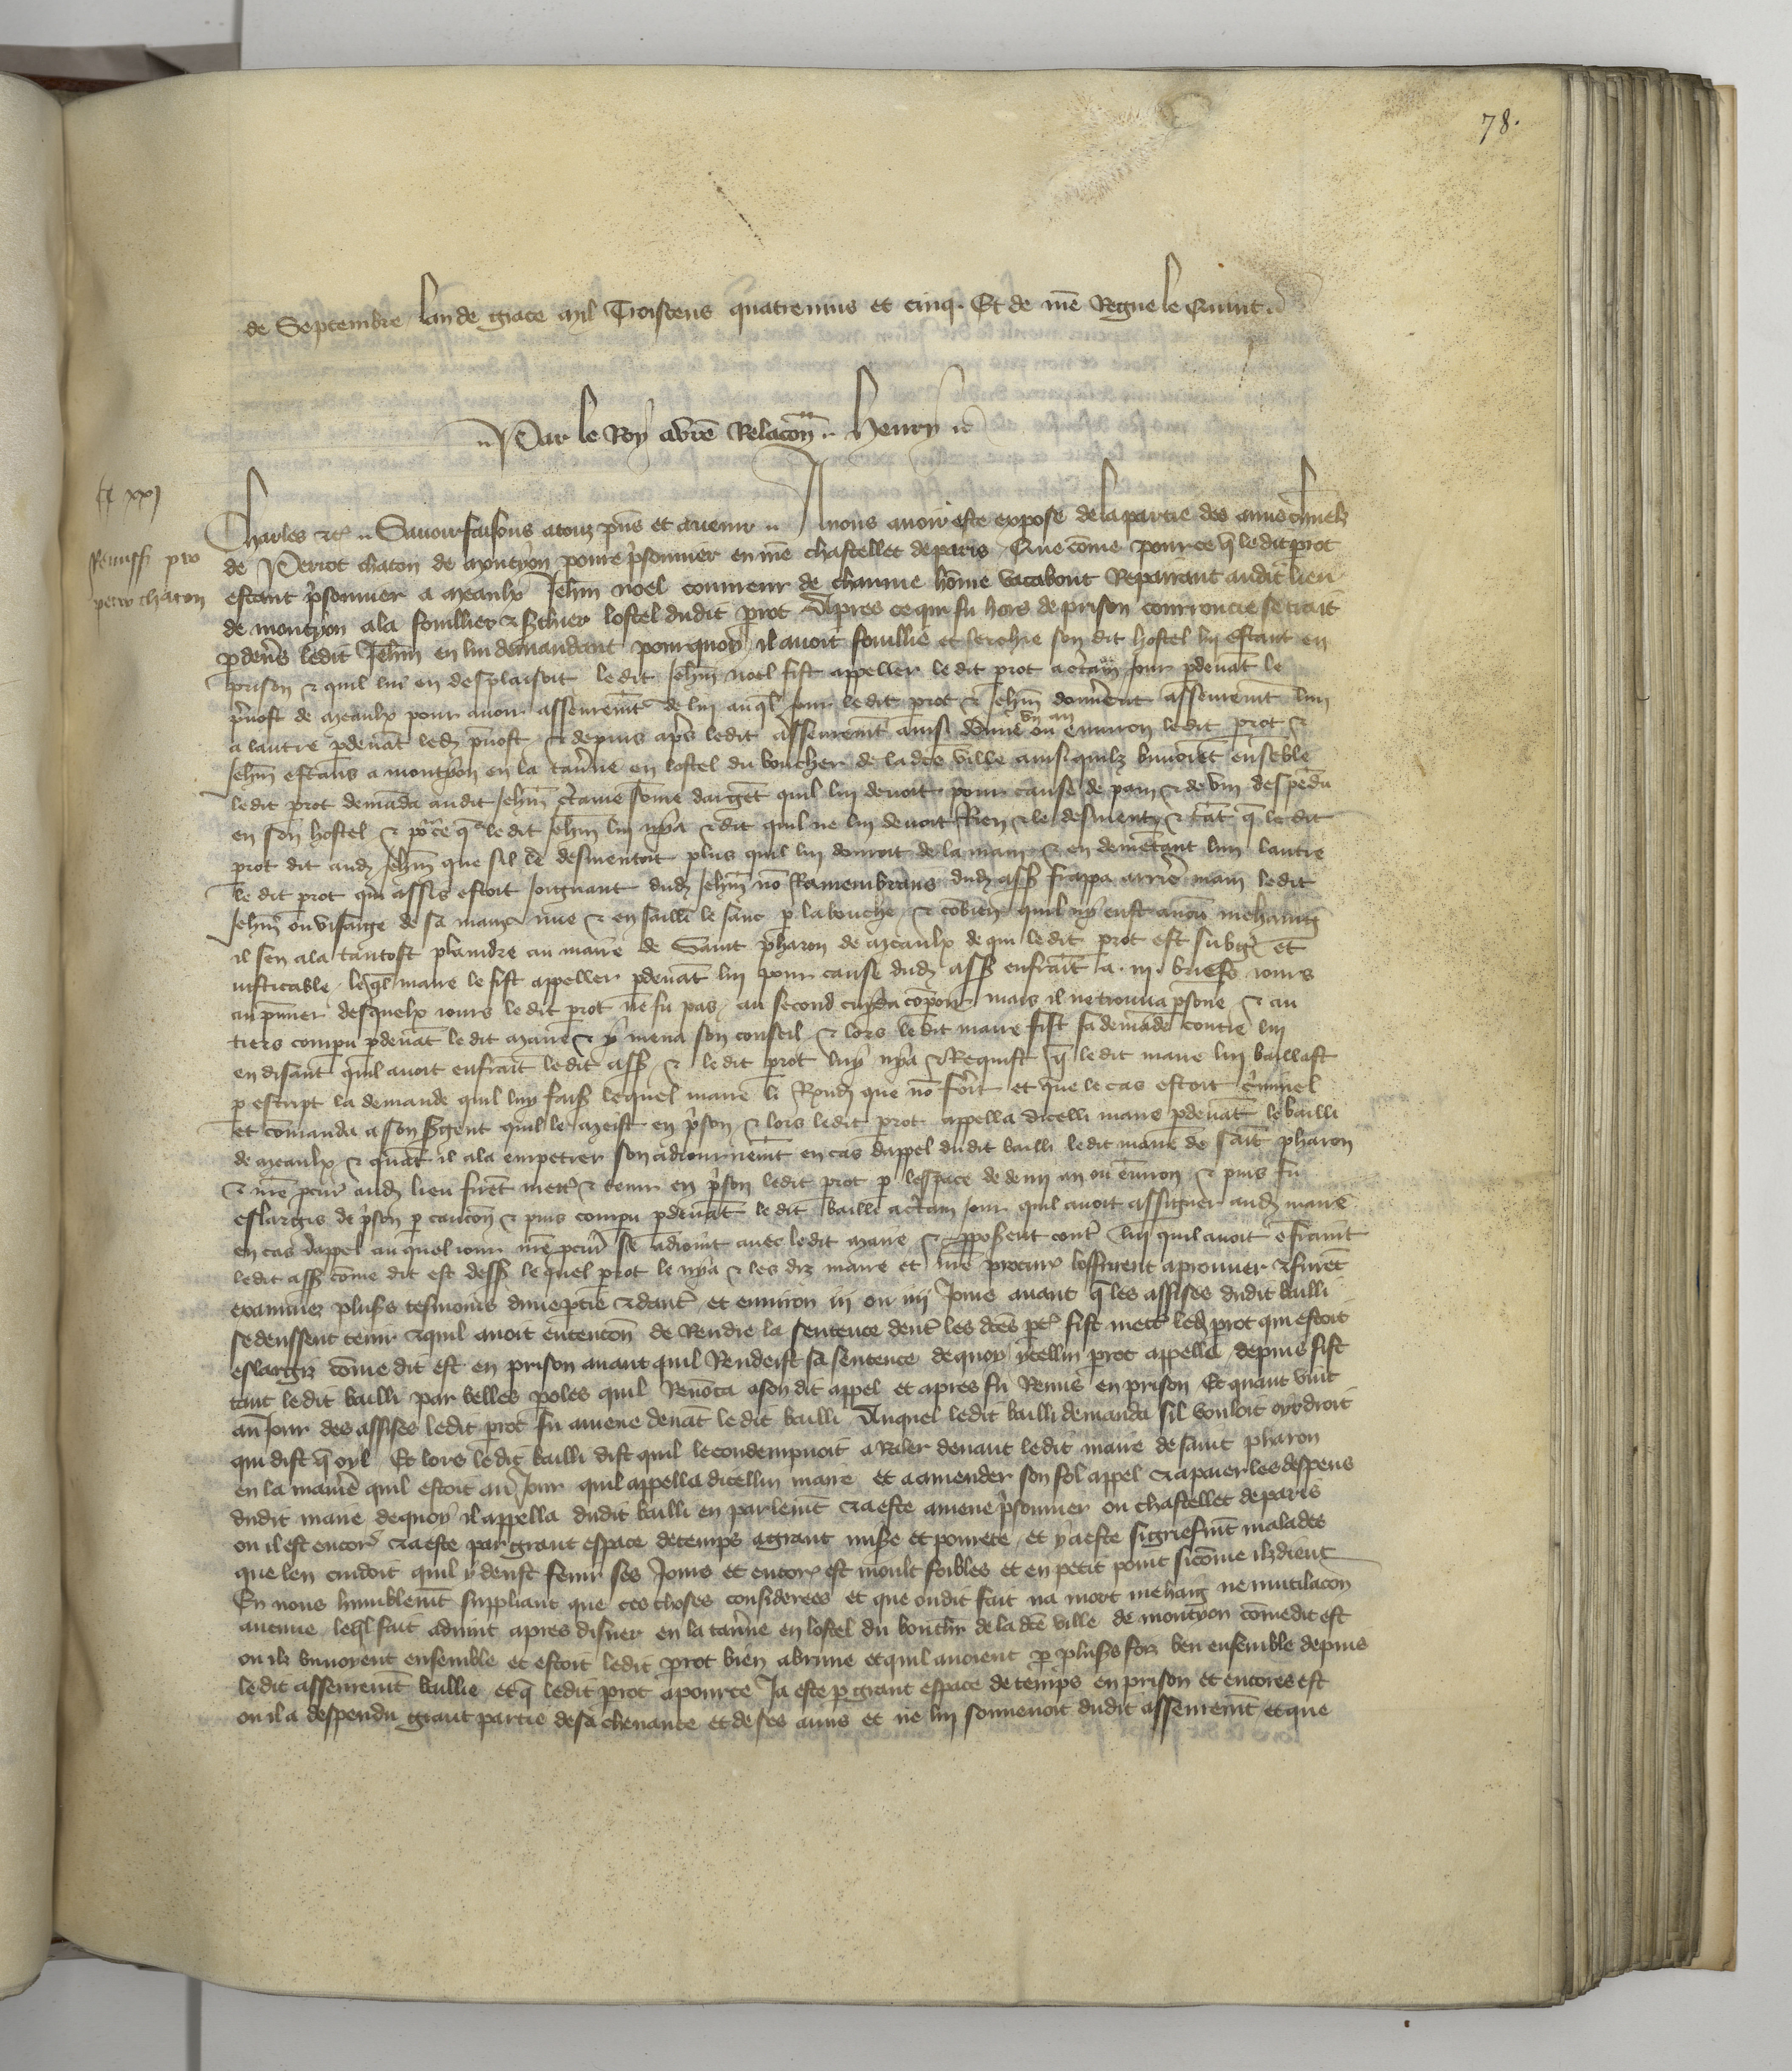 78.
de Septembre lan de grace mil Troiscens quatrevins et cinq. Et de nr̄e Regne le Quint.
Par le Roy a vr̄e Relacōn. Henry
iiᶜ xxj
Remiss. pro
petro chaton
Charles etc. Savoir faisons a touz pn̄s et avenir. A nous avoir este expose de la partie des amis charnelz
de Perrot chaton de montyon povre p̄sonnier en nr̄e chastellet de paris. Que cōme pour ce q̄ le dit p̄rot
estant p̄sonnier a meaulx Jehan noel couvreur de chaume hōme vacabont Repairant audit lieu
de montyon ala fouillier et s̄chier lostel dudit p̄rot. Apres ce qui fu hors de prison courroucie se trait
p deu̅s ledit Jeh̄n en lui demandant pour quoy il avoit fouillie et serchie son dit hostel lui estant en
prison et quil lui en desplaisoit le dit Jeh̄n noel fist appeller le dit p̄rot a c̄tain Jour p devāt le
p̄vost de meaulx pour avoir asseuremēt de lui au q̄l Jour le dit p̄rot et Jeh̄n donn̄ent asseuremēt lun
a lautre p devāt led p̄vost et depuis ap̄s le dit asseuremēt ainsi donne un an ou environ le dit p̄rot et
Jeh̄n estans a montyon en la tav̄ne en lostel du boucher de la dc̄e ville ainsi quilz buvoiēt ensēble
le dit p̄rot demāda audit Jeh̄n c̄taine sōme dargēt quil lui devoit pour cause de pain et de vin despēdu
en son hostel et po̅ ce q̄ le dit Jeh̄n lui nya et dit quil ne lui devoit Rien et le desmenty et tāt q̄ le dit
p̄rot dit aud Jeh̄n que sil le desmentoit plus quil lui donroit de la main et en demētant lun lautre
le dit p̄rot qui assis estoit Joignant dud Jeh̄n nō Ramembrans dud ass̄ frappa arriere main le dit
Jeh̄n ou visaige de sa main nue et en sailli le sanc p la bouche et cōbien quil ny eust aucū mehaing
il sen ala tantost plaindre au maire de Saint pharon de meaulx de qui le dit p̄rot est subgt et
justicable. leq̄l maire le fist appeller p devāt lui pour cause dud ass̄ enfrait a .iij. briefs jours
au p̄mier desquelx jours le dit p̄rot ne fu pas, au second cuida cōpoir mais il ne trouva p̄sone et au
tiers compu p devāt le dit maire et y mena son conseil et lors le dit maire fist sa demāde contre lui
en disant quil avoit enfrait le dit ass̄ et le dit p̄rot luy nya et Requist q̄ le dit maire lui baillast
p escript la demande quil luy fais̄ lequel maire li Rnd̄ que nō fer̄it et que le cas estoit c̄minel
et cōmanda a son S̄gent quil le meist en p̄son et lors le dit p̄rot appella dicelli maire p devāt le bailli
de meaulx et quāt il ala empetrer son adiournemēt en cas dappel dudit bailli le dit maire de sait pharon
et nr̄e pcur̄ aud lieu firēt mett̄ et tenir en p̄son ledit p̄rot p lespace de demi an ou ēviron et puis fu
eslargis de p̄son p caucōn et puis compu p devāt le dit bailli a c̄tain Jour quil avoit assigner aud maire
en cas dappel au quel jour nr̄e pcur̄ se adioint avec ledit maire et p̄pos̄ent cont̄ lui quil avoit ēfraint
ledit ass̄ cōme dit est dess̄ lequel p̄rot le nya et les diz maire et nr̄e procur̄ loffrirent a prouver et furēt
examinez plus̄s tesmoins dune ptie et daut̄ et environ iij ou iiij Jours avant q̄ les assises dudit bailli
se deussent tenir et quil avoit entencōn de Rendre la sentence dent̄ les dc̄es pt̄ fist mett̄ led p̄rot qui estoit
eslargiz cōme dit est en prison avant quil Rendeist sa sentence de quoy ycellui p̄rot appella depuis fist
tant le dit bailli par belles poles quil Renōca a son dit appel et apres fu Remis en prison Et quant vint
au Jour des assises le dit p̄rot fu amene devāt le dit bailli Auquel le dit bailli demanda sil vouloit oyr droit
qui dist q̄ oyl. Et lors le dit bailli dist quil le condempnoit a Raler devant ledit maire de saint pharon
en la manie̅ quil estoit au Jour quil appella dicellui maire et a amender son fol appel et a paier les despens
dudit maire de quoy il appella dudit bailli en parlemēt et a este amene p̄sonnier ou chastellet de paris
ou il est encor̄ et a este par grant espace de temps a grant mis̄e et povrete, et y a este si griefmēt malades
que len cuidoit quil y deust fenir ses Jours et encor̄ est moult foibles et en petit point si cōme ilz dient
En nous humblemēt suppliant que ces choses considerees et que ou dit fait na mort mehaig ne mutilacōn
avenue, leq̄l fait advint apres disner en la tav̄ne en lostel du bouchr̄ de la dc̄e ville de montyon cōme dit est
ou ilz buvoyent ensemble et estoit ledit p̄rot bien abuvre et quil avoient p plus̄s foiz beu ensemble depuis
le dit asseuremēt baillie et q̄ ledit p̄rot a pour ce Ja este p grant espace de temps en prison et encores est
ou il a despendu grant partie de sa chevance et de ses amis et ne lui souvenoit dudit asseuremēt et que